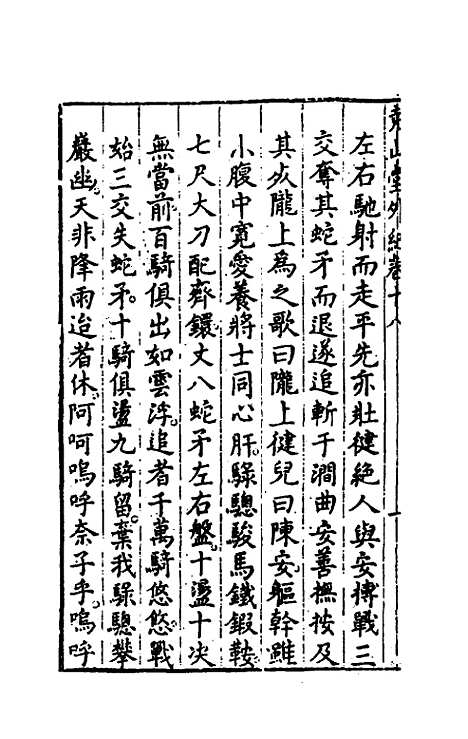 堯山堂外紀卷十八
左右馳射而走平先亦壯健絶人與安搏戰三
交奪其蛇矛而退遂追斬于澗曲安善撫按及
其死隴上爲之歌曰隴上健兒曰陳安軀幹雖
小腹中寬愛養將士同心肝騄驄駿馬鐵鍜鞍
七尺大刀配齊鐶丈八蛇矛左右盤十盪十决
無當前百騎俱出如雲浮追者千萬騎悠悠戰
始三交失蛇矛十騎俱盪九騎留棄我騄驄攀
巖幽天非降雨迨者休阿呵嗚呼奈子乎嗚呼